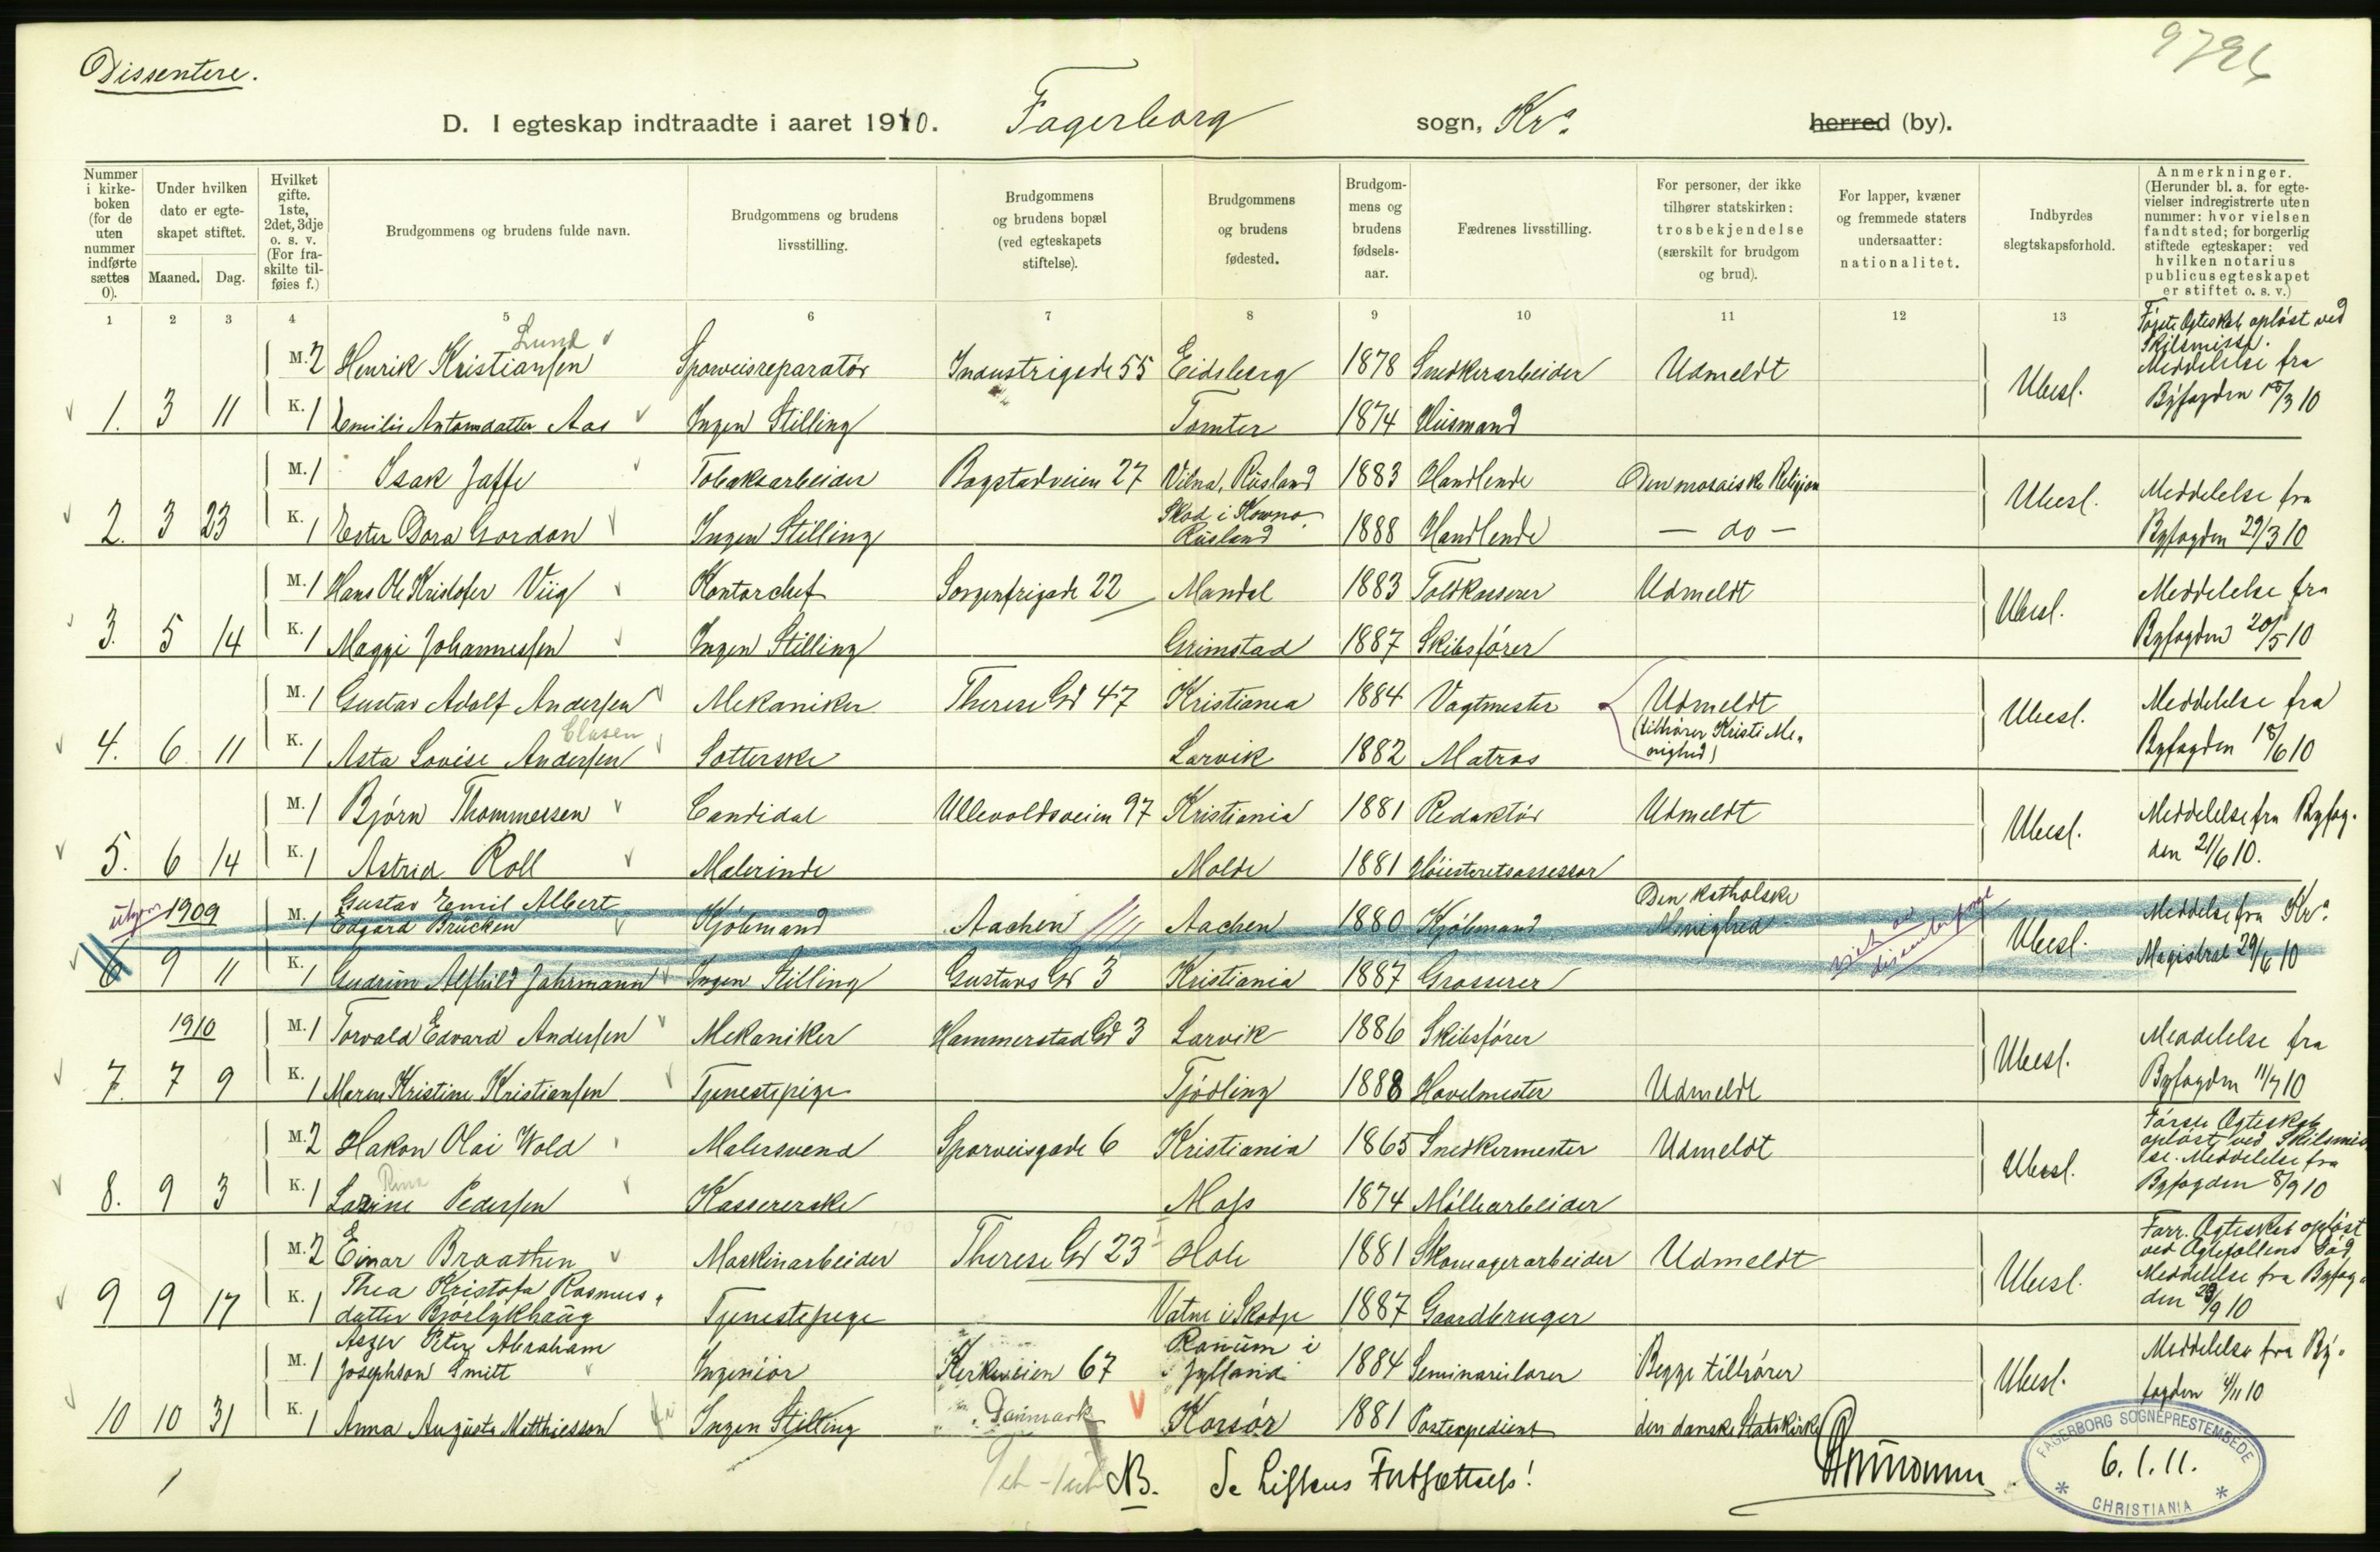 9796
Dissentere.
D. I egteskap indtraadte i aaret 1910. Fagerborg sogn, Kra. herred (by).
Nummer i kirkeboken (for de uten nummer indførte sættes 0).
Under hvilken dato er egteskapet stiftet.
Maaned. Dag.
Hvilket gifte. 1ste, 2det, 3dje o. s. v. (For fraskilte tilføies f.)
Brudgommens og brudens fulde navn.
Brudgommens og brudens livsstilling.
Brudgommens og brudens bopæl (ved egteskapets stiftelse).
Brudgommens og brudens fødested.
Brudgommens og brudens fødselsaar.
Fædrenes livsstilling.
For personer, der ikke tilhører statskirken: trosbekjendelse (særskilt for brudgom og brud).
For lapper, kvæner og fremmede staters undersaatter: nationalitet.
Indbyrdes slegtskapsforhold.
Anmerkninger. (Herunder bl. a. for egtevielser indregistrerte uten nummer: hvor vielsen fandt sted; for borgerlig stiftede egteskaper: ved hvilken notarius publicus egteskapet er stiftet o. s. v.)
1 2 3 4 5 6 7 8 9 10 11 12 13
Lund
M. 2 Henrik Kristiansen Sporveisreparatör Industrigade 55 Eidsberg 1878 Snedkerarbeider Udmeldt Ubesl. Første Ægteskab opløst ved Skilsmisse. Meddelelse fra
1. 3 11 K. 1 Emilie Antonsdatter Aas Ingen Stilling Tomter 1874 Husmand Byfogden 18/3 10
M. 1 Isak Jaffe Tobaksarbeider Bogstadveien 27 Vilna, Rusland 1883 Handlende Den mosaiske Religion Ubesl. Meddelelse fra
2. 3 23 K. 1 Ester Dora Gordon Ingen Stilling Skod i Kowno Rusland 1888 Handlende — do — Byfogden 29/3 10
M. 1 Hans Ole Kristofer Viig Kontorchef Sorgenfrigade 22 Mandal 1883 Toldkasserer Udmeldt Ubesl. Meddelelse fra
3. 5 14 K. 1 Maggi Johannessen Ingen Stilling Grimstad 1887 Skibsfører Byfogden 20/5 10
M. 1 Gustav Adolf Andersen Mekaniker Therese Gd 47 Kristiania 1884 Vagtmester Udmeldt (tilhører Kristi Menighed) Ubesl. Meddelelse fra
Clasen
4. 6 11 K. 1 Asta Lovise Andersen Sætterske Larvik 1882 Matros Byfogden 18/6 10
M. 1 Bjørn Thommessen Candidat Ullevoldsveien 97 Kristiania 1881 Redaktör Udmeldt Ubesl. Meddelelse fra Byfog-
5. 6 14 K. 1 Astrid Roll Malerinde Molde 1881 Høiesteretsassessor den 21/6 10.
1909 M. 1 Gustav Emil Albert Edgard Brücken Kjøbmand Aachen Aachen 1880 Kjøbmand Den katholske Menighed Ubesl. Meddelse fra Kra.
6 9 11 K. 1 Gudrun Alfhild Jahrmann Ingen Stilling Gustavs Gd 3 Kristiania 1887 Grosserer Magistrat 29/6 10
1910 M. 1 Torvald Edvard Andersen Mekaniker Hammerstad Gd 3 Larvik 1886 Skibsfører Ubesl. Meddelelse fra
7. 7 9 K. 1 Maren Kristine Kristiansen Tjenestepige Tjødling 1888 Høvelmester Udmeldt Byfogden 11/7 10
M. 2 Hakon Olai Wold Malersvend Sporveisgade 6 Kristiania 1865 Snedkermester Udmeldt Ubesl. Første Ægteskab opløst ved Skilsmisse. Meddelelse fra
8. 9 3 K. 1 Lovine Pedersen Kassererske Moss 1874 Møllearbeider Byfogden 8/9 10
M. 2 Einar Braathen Maskinarbeider Therese Gd 23 Hole 1881 Skomagerarbeider Udmeldt Ubesl. Forr. Ægteskab opløst ved Ægtefællens Død. Meddelelse fra Byfog-
9 9 17 K. 1 Thea Kristofa Rasmusdatter Bjørlykhaug Tjenestepige Vatne i Skodje 1887 Gaardbruger den 23/9 10
M. 1 Asger Peter Abraham Josephson Smitt Ingeniör Kirkeveien 67 Ranum i Jylland 1884 Seminarielærer Begge tilhører Ubesl. Meddelelse fra By-
10 10 31 K. 1 Anna Augusta Matthiesson Ingen Stilling Danmark Korsør 1881 Postexpedient den danske Statskirke fogden 4/11 10
NB. Se Listens Fortsættelse!
FAGERBORG SOGNEPRESTEMBEDE
6.1.11.
* CHRISTIANIA *